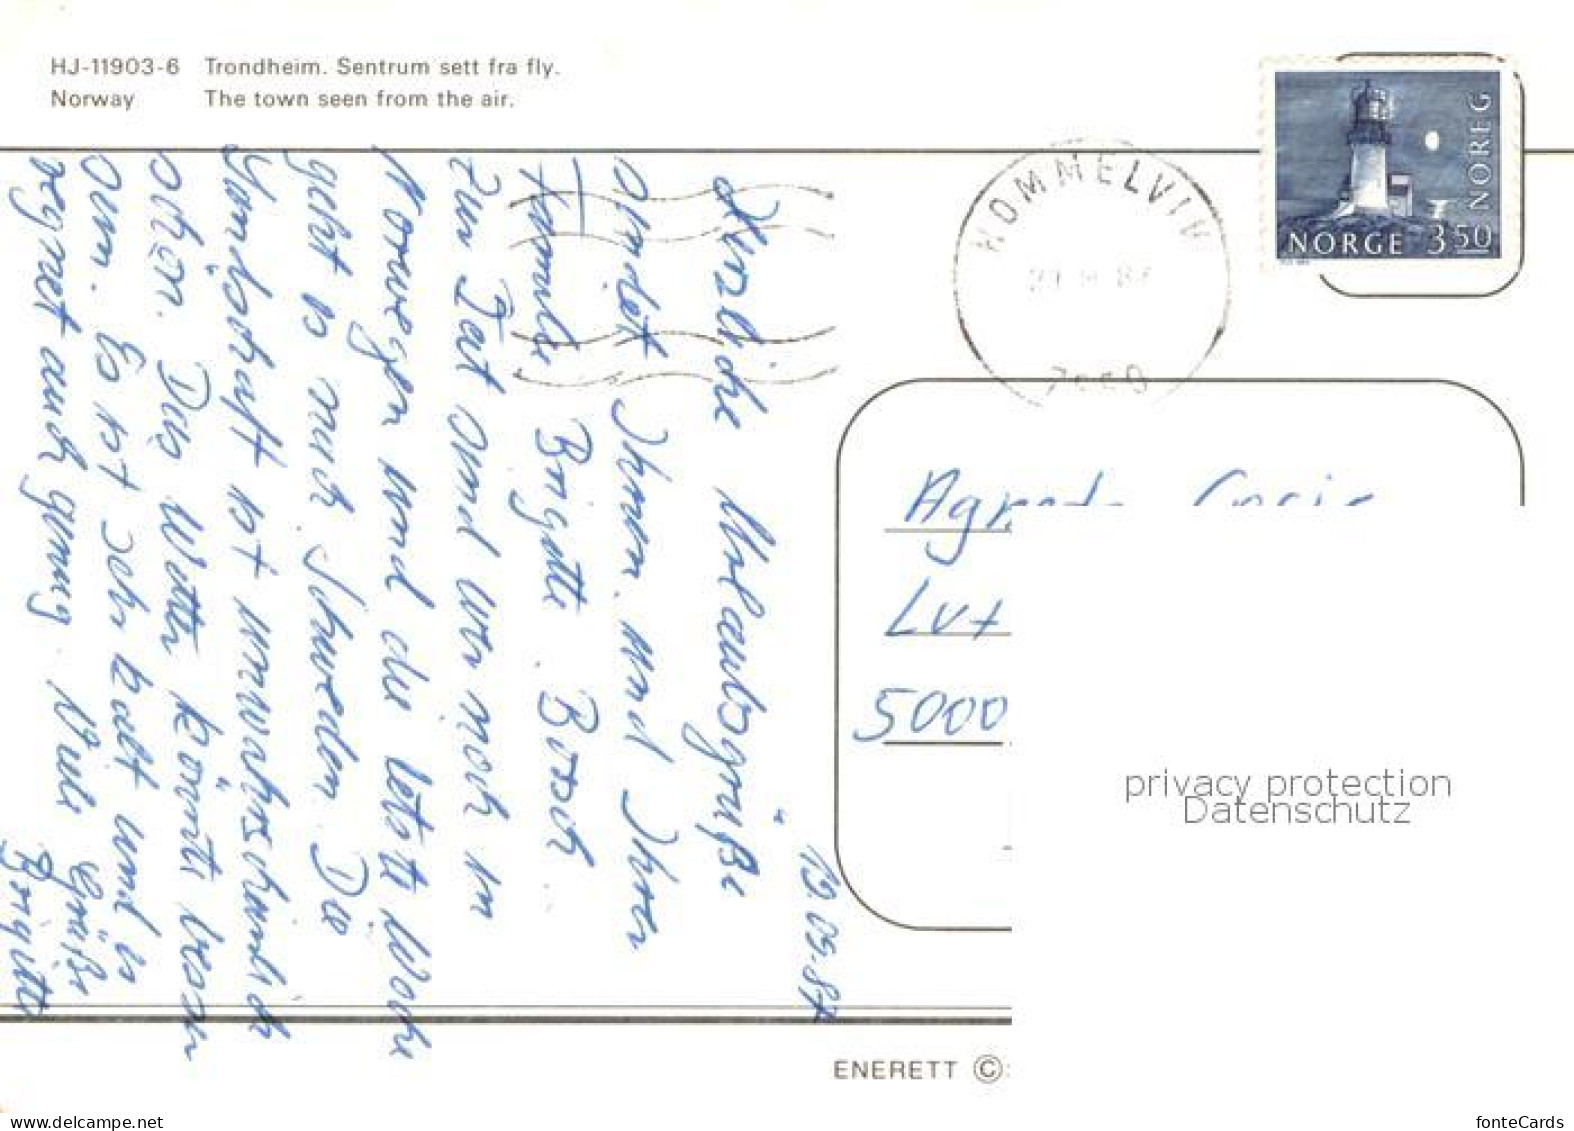 HJ-11903-6 Trondheim. Sentrum sett fra fly.
Norway The town seen from the air.
NORGE 350
NOREG
HOMMELVIK
7550
19.05.87
Herzliche Urlaubsgrüße
sendet Ihnen und Ihrer
Familie Brigitte
Zur Zeit sind wir noch in
Norwegen und die letzte Woche
geht es nach Schweden. Die
Landschaft ist unwahrscheinlich
schön. Das Wetter könnte besser
sein. Es ist sehr kalt und es
regnet auch genug. Viele Grüße
Brigitte
5000
privacy protection
Datenschutz
ENERETT ©
www.delcampe.net
fonteCards